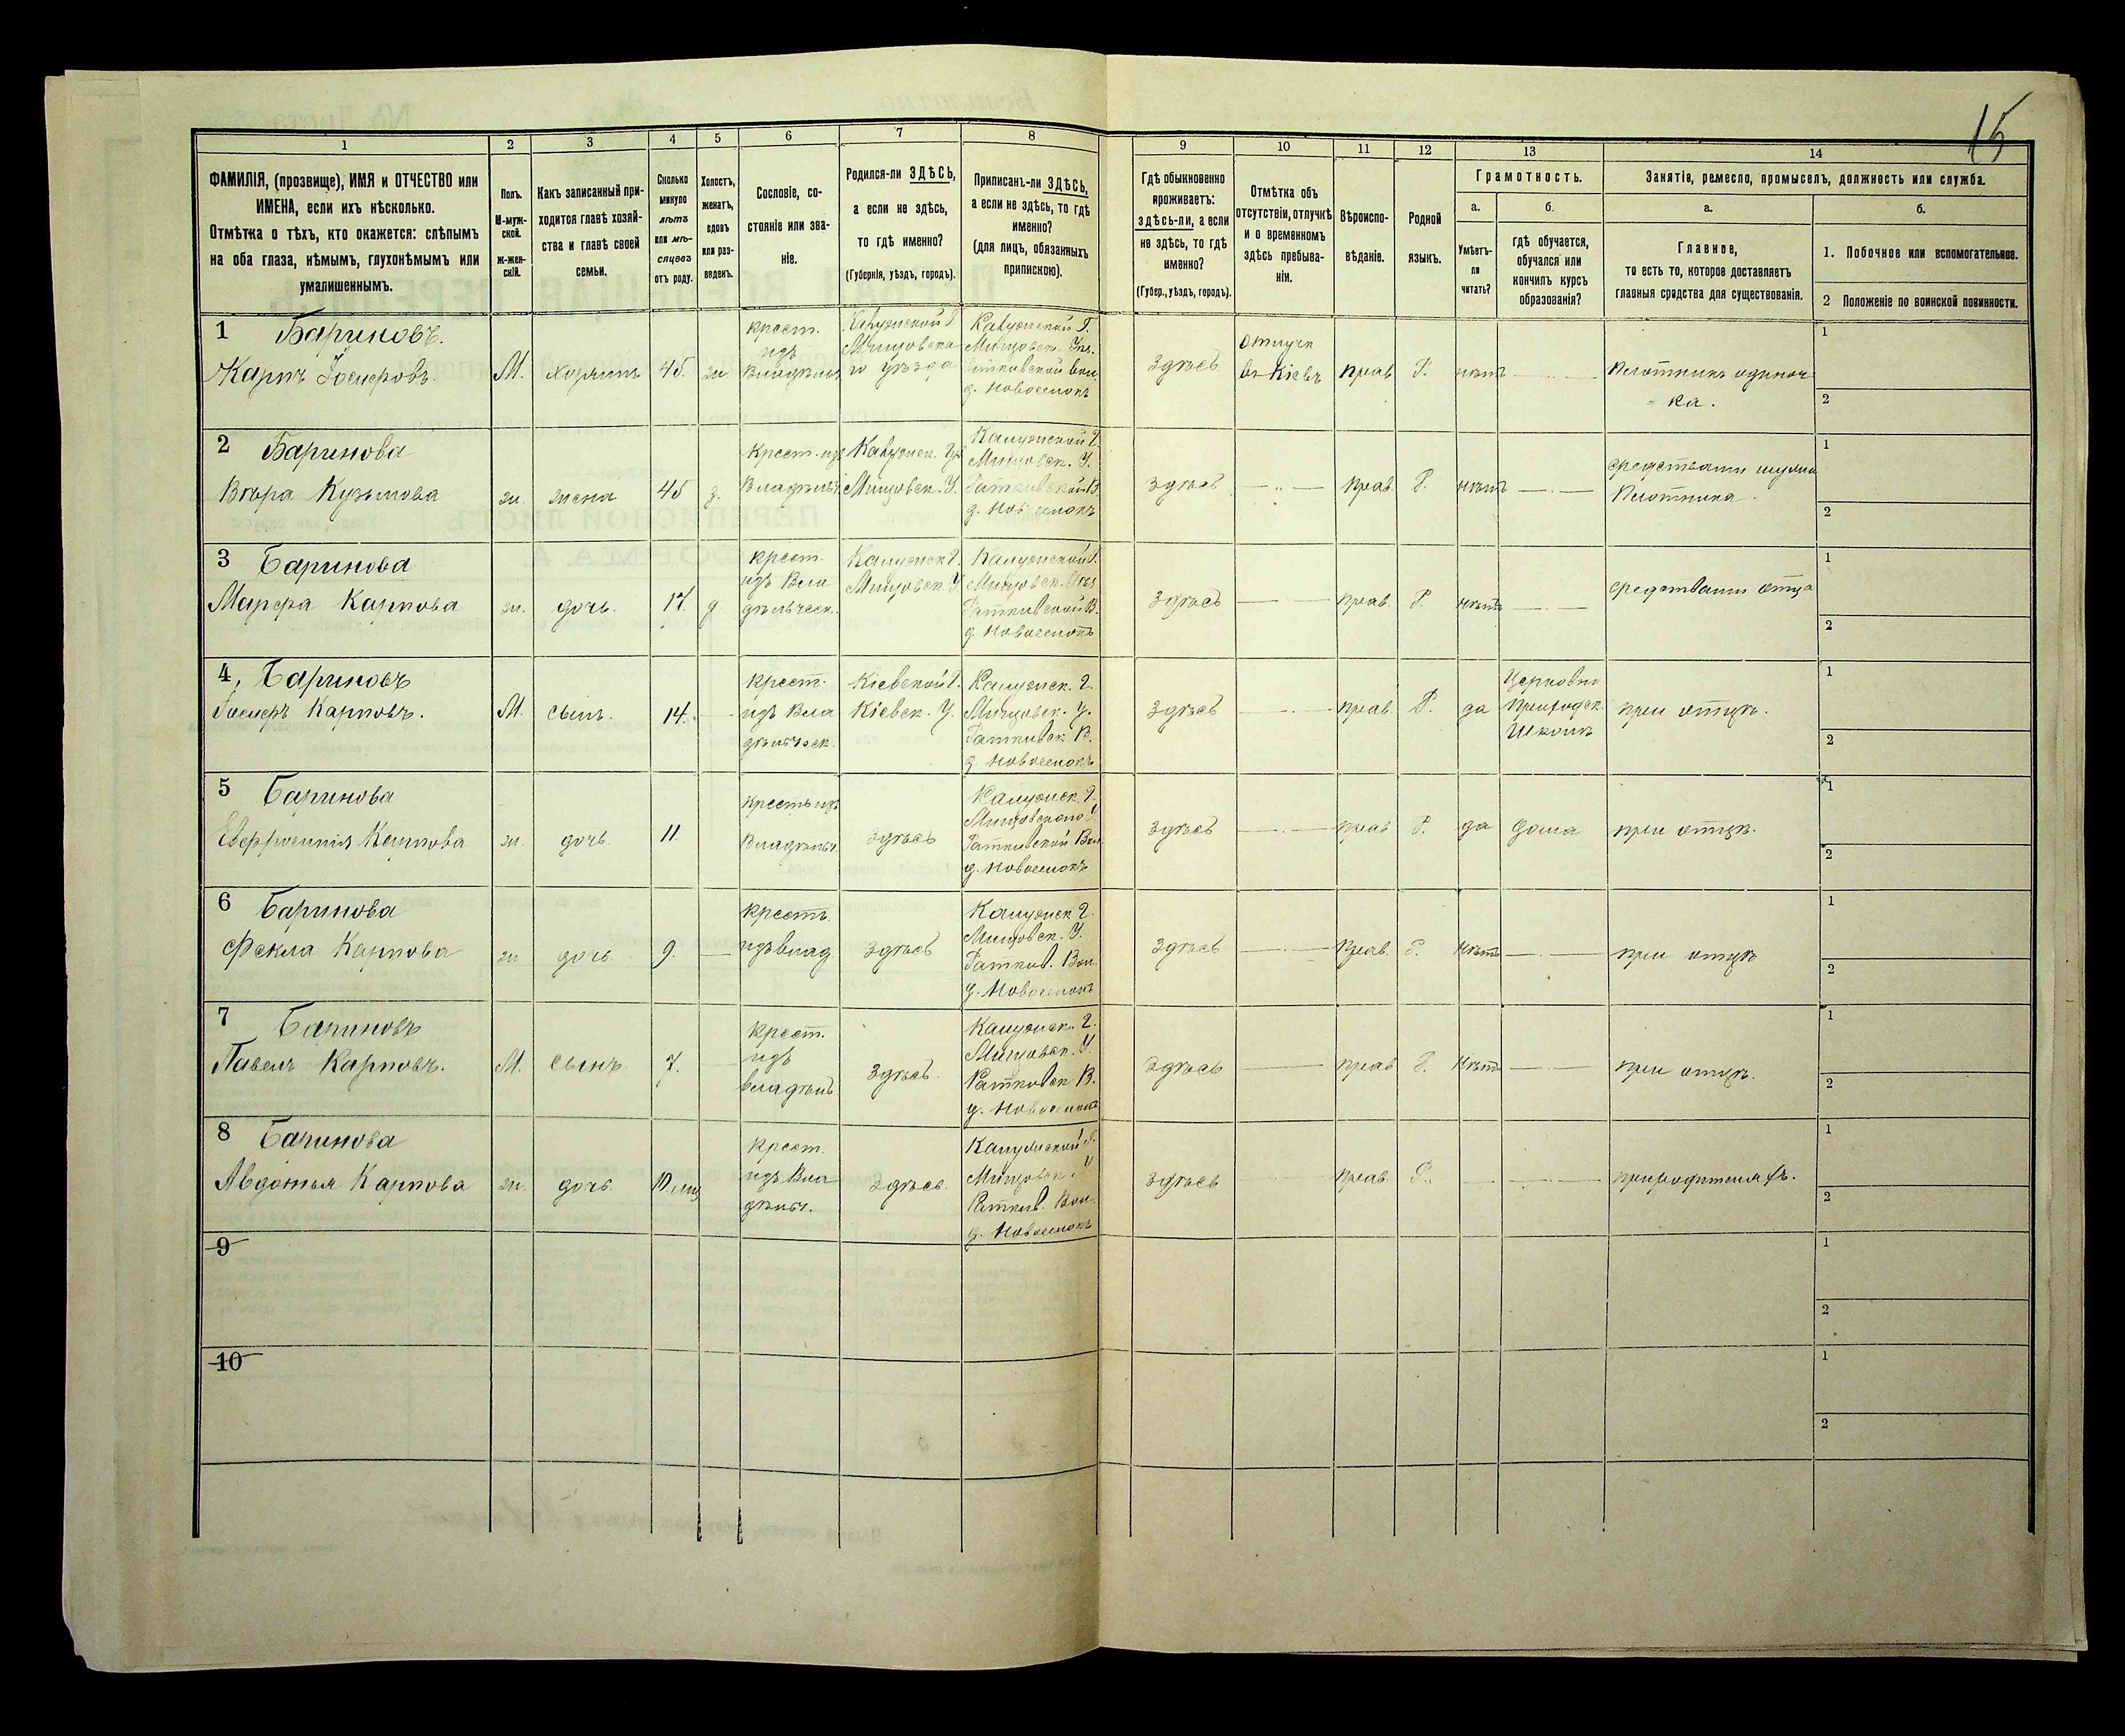 15
1
2
3
4
5
6
7
8
9
10
11
12
13
14
ФАМИЛІЯ, (прозвище), ИМЯ и ОТЧЕСТВО или
ИМЕНА, если ихъ нѣсколько.
Отмѣтка о тѣхъ, кто окажется: слѣпымъ
на оба глаза, нѣмымъ, глухонѣмымъ или
умалишеннымъ.
Полъ.
М-муж-
ской.
Ж-жен-
скій.
Какъ записанный при-
ходится главѣ хозяй-
ства и главѣ своей
семьи.
Сколько
минуло
лѣтъ
или мѣ-
сяцевъ
отъ роду.
Холостъ,
женатъ,
вдовъ
или раз-
веденъ.
Сословіе, со-
стояніе или зва-
ніе.
Родился-ли ЗДѢСЬ,
а если не здѣсь,
то гдѣ именно?
(Губернія, уѣздъ, городъ).
Приписанъ-ли ЗДѢСЬ,
а если не здѣсь, то гдѣ
именно?
(для лицъ, обязанныхъ
припискою).
Гдѣ обыкновенно
проживаетъ:
здѣсь-ли, а если
не здѣсь, то гдѣ
именно?
(Губер., уѣздъ, городъ).
Отмѣтка объ
отсутствіи, отлучкѣ
и о временномъ
здѣсь пребыва-
ніи.
Вѣроиспо-
вѣданіе.
Родной
языкъ.
Грамотность.
а.
Умѣетъ-
ли
читать?
б.
гдѣ обучается,
обучался или
кончилъ курсъ
образованія?
Занятіе, ремесло, промыселъ, должность или служба.
а.
Главное,
то есть то, которое доставляетъ
главныя средства для существованія.
б.
1. Побочное или вспомогательное.
2 Положеніе по воинской повинности.
1 Бариновъ.
Карпъ Іосифовъ.
М.
хозяинъ
45
ж
крест.
изъ
Владѣльч
Калужской Г.
Мещовска
го уѣзда
Калужской Г.
Мещовск. Уѣз.
д. Новоселокъ
Здѣсь
Отлуч
въ Кіевъ
прав
Р.
нѣтъ
Плотникъ одиноч
ка.
1
2
2 Баринова
Вѣра Кузьмова
ж.
жена
45
з.
Крест. изъ
Владѣльч
Калужск. Гу
Мещовск. У.
Калужской Г.
Мещовск. У.
д. Новоселокъ
Здѣсь
прав.
Р.
нѣтъ
средствами мужа
Плотника.
1
2
3 Баринова
Марфа Карпова
ж.
дочь.
17.
д
крест.
изъ Вла
дѣльческ.
Калужск Г.
Мещовск. У.
Калужской Г.
Мещовск. Уѣз
д. Новоселокъ
Здѣсь
прав.
Р.
нѣтъ
средствами отца
1
2
4, Бариновъ
Іосифъ Карповъ.
М.
сынъ.
14.
крест.
изъ Вла
дѣльческ.
Кіевской Г.
Кіевск. У.
Калужск. Г.
Мещовск. У.
д. Новоселокъ
Здѣсь
прав.
Р.
да
Церковно
Приходск.
Школѣ
при отцѣ.
1
2
5 Баринова
Евфросинія Карпова
ж.
дочь.
11.
Крестъ изъ
Владѣльч.
Здѣсь
Калужск. Г.
Мещовскаго У
д. Новоселокъ
Здѣсь
прав
Р.
да
дома
при отцѣ.
1
2
6 Баринова
Фекла Карпова
ж
дочь
9.
крестъ.
изъ влад
Здѣсь
Калужск Г.
Мещовск. У.
д. Новоселокъ
Здѣсь
прав.
Р.
нѣтъ
при отцѣ
1
2
7 Бариновъ
Павелъ Карповъ.
М.
сынъ.
7.
крест.
изъ
владѣль
Здѣсь.
Калужск. Г.
Мещовск. У.
д. Новоселокъ
Здѣсь
прав
Р.
Нѣтъ
при отцѣ.
1
2
8 Баринова
Авдотья Карпова
ж.
дочь.
10 мѣс
крест.
изъ Вла
дѣльч.
Здѣсь.
Калужской Г.
Мещовск. У
д. Новоселокъ
Здѣсь
прав.
Р.
при родителяхъ.
1
2
9
1
2
10
1
2